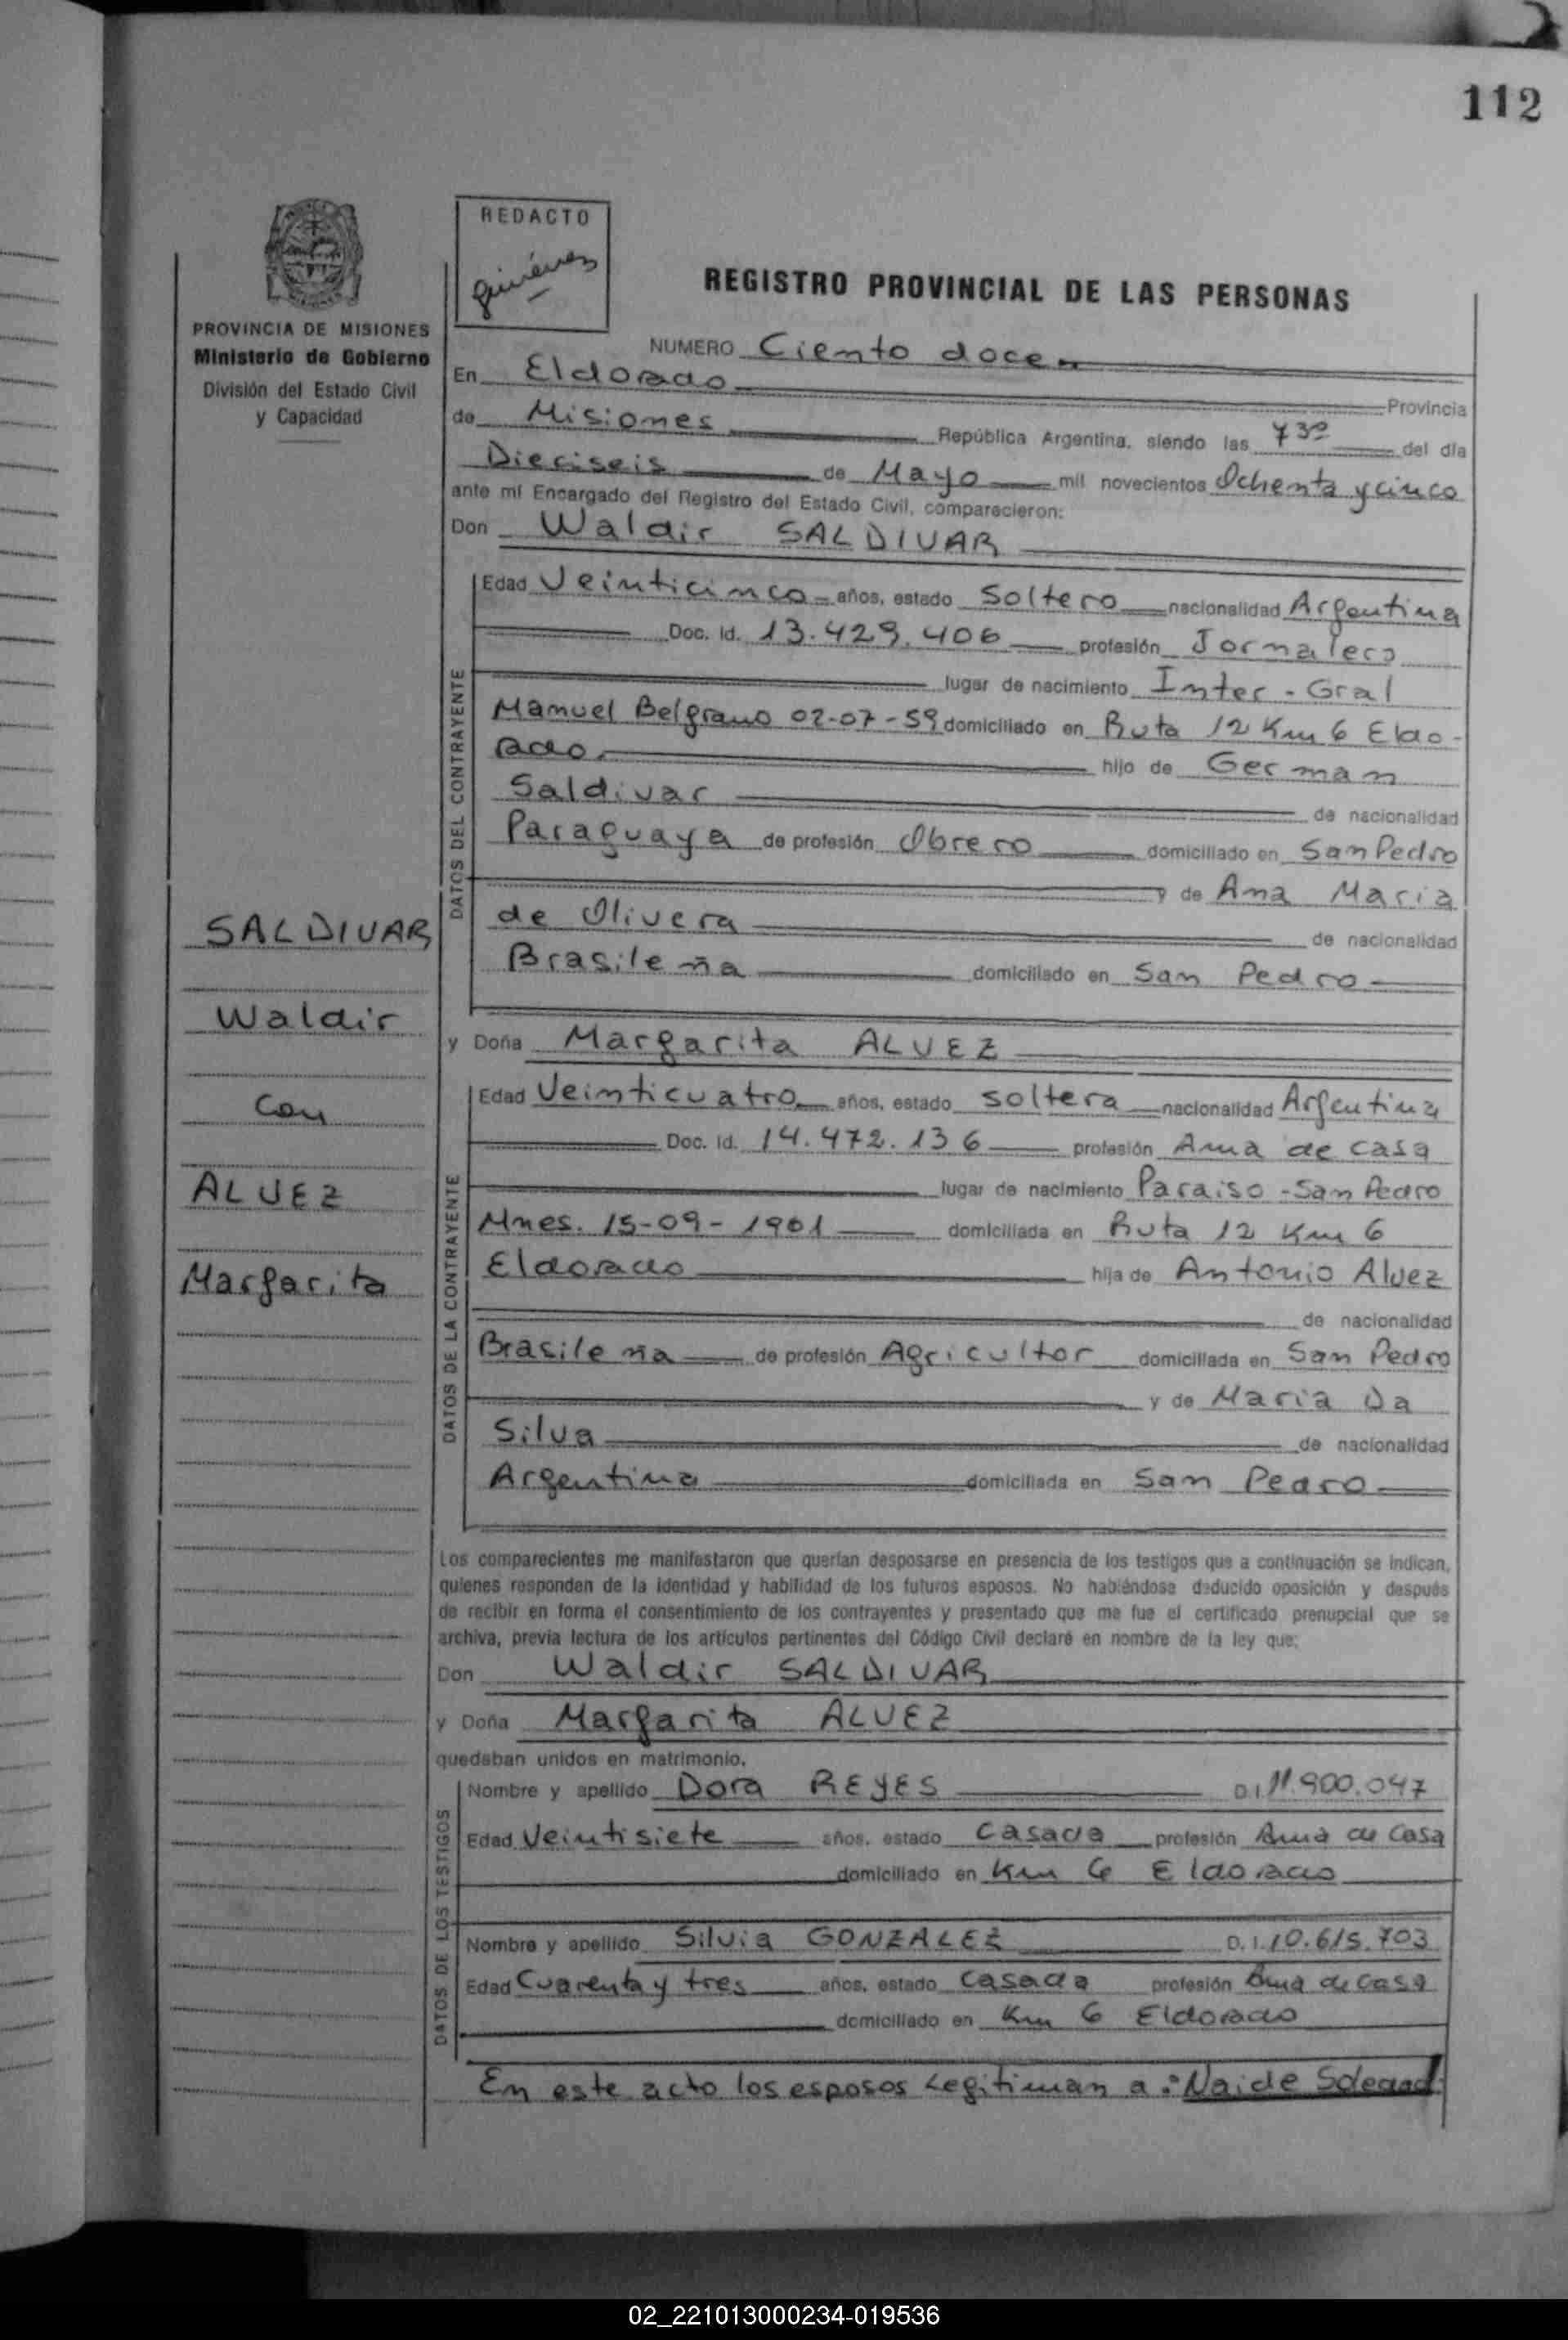 112
REDACTO
REGISTRO PROVINCIAL DE LAS PERSONAS
PROVINCIA DE MISIONES
Ministerio de Gobierno
División del Estado Civil
y Capacidad
NUMERO Ciento doce
En Eldorado Provincia
de Misiones República Argentina, siendo las 7 30 del día
Dieciseis de Mayo mil novecientos Ochenta y cinco
ante mí Encargado del Registro del Estado Civil, comparecieron:
Don Waldir SALDIVAR
DATOS DEL CONTRAYENTE
Edad Veinticinco años, estado Soltero nacionalidad Argentina
Doc. Id. 13.429.406 profesión Jornalero
lugar de nacimiento Inter - Gral
Manuel Belgrano 02-07-59 domiciliado en Ruta 12 Km 6 Eldo-
rado. hijo de German
Saldivar de nacionalidad
Paraguaya de profesión Obrero domiciliado en San Pedro
y de Ana Maria
de Olivera de nacionalidad
Brasileña domiciliado en San Pedro
SALDIVAR
Waldir
con
ALVEZ
Margarita
y Doña Margarita ALVEZ
DATOS DE LA CONTRAYENTE
Edad Veinticuatro años, estado soltera nacionalidad Argentina
Doc. Id. 14.472.136 profesión Ama de casa
lugar de nacimiento Paraiso - San Pedro
Mnes. 15-09-1961 domiciliada en Ruta 12 Km 6
Eldorado hija de Antonio Alvez
de nacionalidad
Brasileña de profesión Agricultor domiciliada en San Pedro
y de Maria Da
Silva de nacionalidad
Argentina domiciliada en San Pedro
Los comparecientes me manifestaron que querían desposarse en presencia de los testigos que a continuación se indican,
quienes responden de la identidad y habilidad de los futuros esposos. No habiéndose deducido oposición y después
de recibir en forma el consentimiento de los contrayentes y presentado que me fue el certificado prenupcial que se
archiva, previa lectura de los artículos pertinentes del Código Civil declaré en nombre de la ley que:
Don Waldir SALDIVAR
y Doña Margarita ALVEZ
quedaban unidos en matrimonio.
DATOS DE LOS TESTIGOS
Nombre y apellido Dora REYES D.I. 11.900.047
Edad Veintisiete años, estado Casada profesión Ama de Casa
domiciliado en Km 6 Eldorado
Nombre y apellido Silvia GONZALEZ D.I. 10.615.703
Edad Cuarenta y tres años, estado Casada profesión Ama de Casa
domiciliado en Km 6 Eldorado
En este acto los esposos Legitiman a: Naide Soledad
02_221013000234-019536